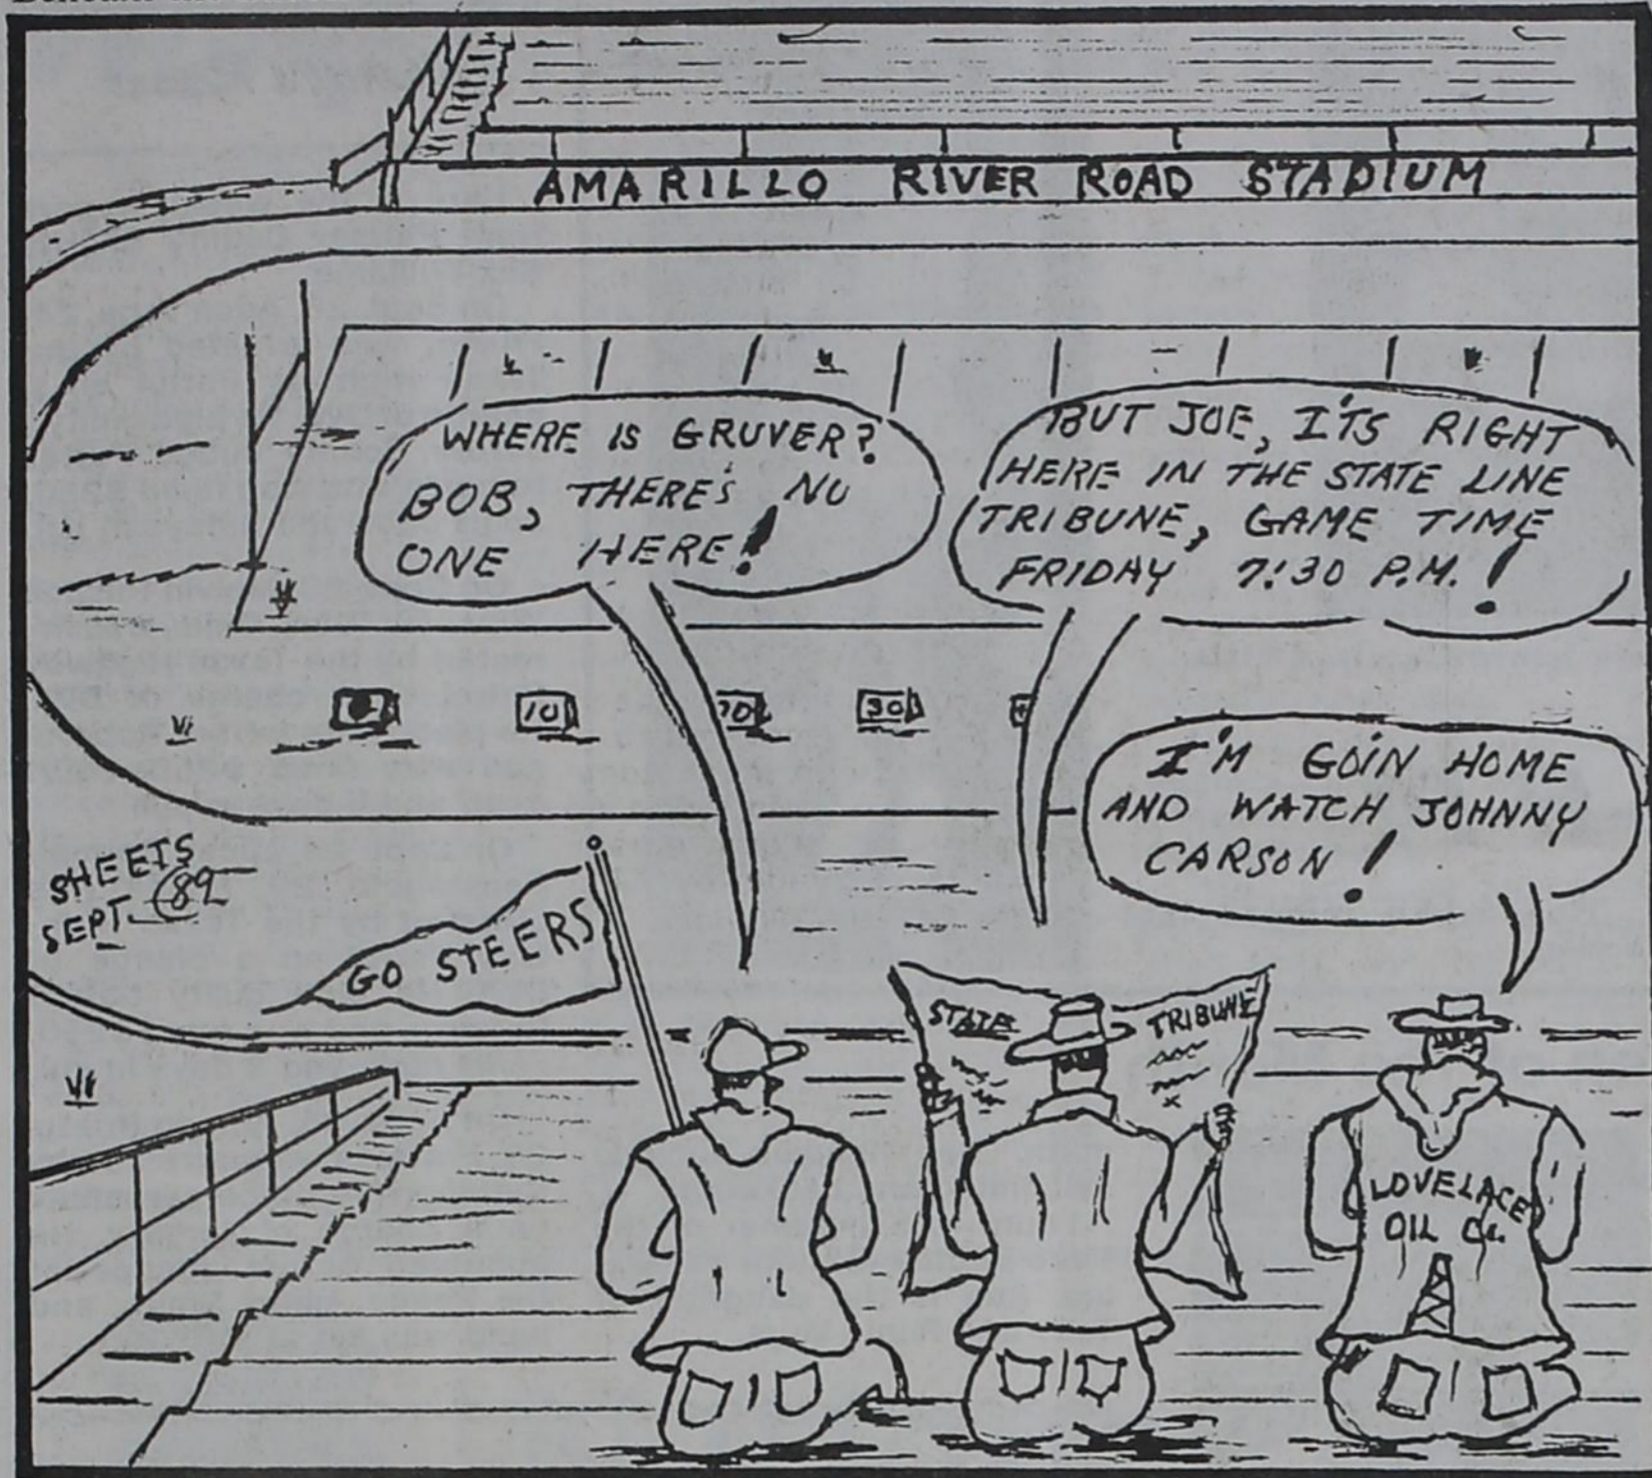 AMARILLO RIVER ROAD STADIUM
WHERE IS GRUVER?
BOB, THERE'S NO
ONE HERE!
BUT JOE, IT'S RIGHT
HERE IN THE STATE LINE
TRIBUNE, GAME TIME
FRIDAY 7:30 P.M.!
10
30
I'M GOIN HOME
AND WATCH JOHNNY
CARSON!
SHEETS
SEPT. 89
GO STEERS
STATE
TRIBUNE
LOVELACE
OIL Co.